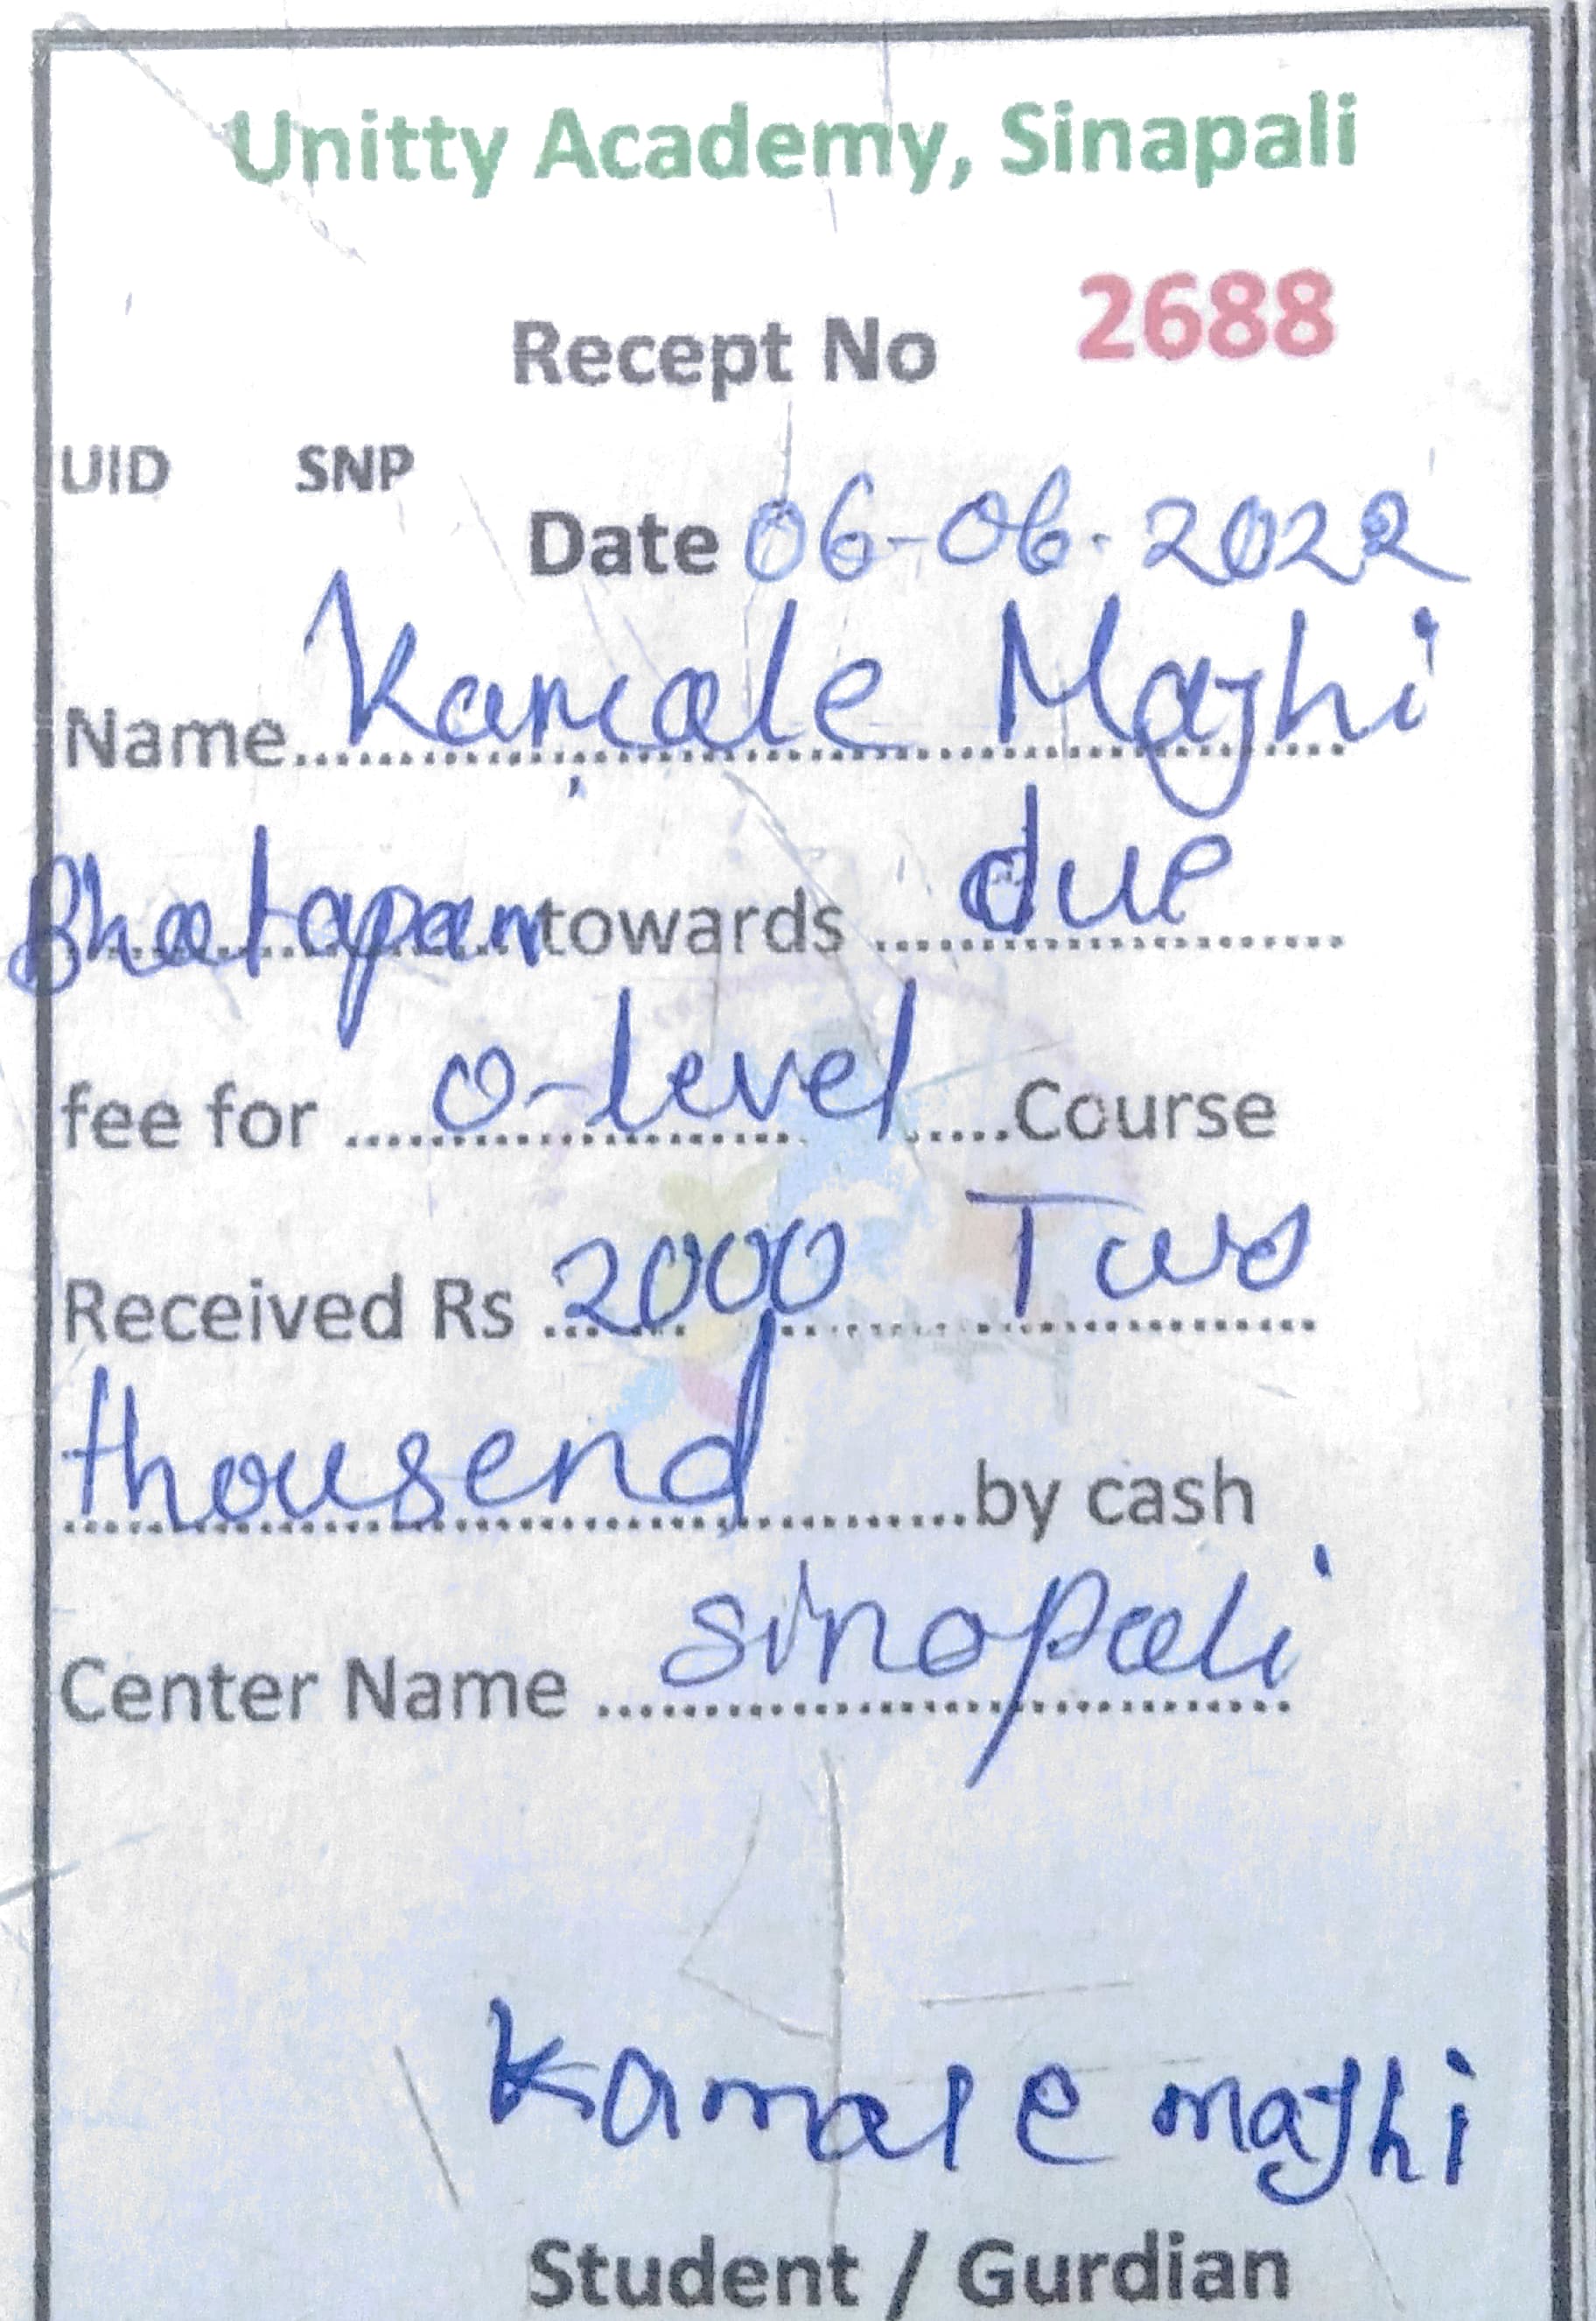 Unitty Academy, Sinapali
Recept No 2688
UID SNP
Date 06-06-2022
Name Kamale Majhi
Bhatapan towards due
fee for O-level Course
Received Rs 2000 Two
thousend by cash
Center Name sinapali
Kamale majhi
Student / Gurdian